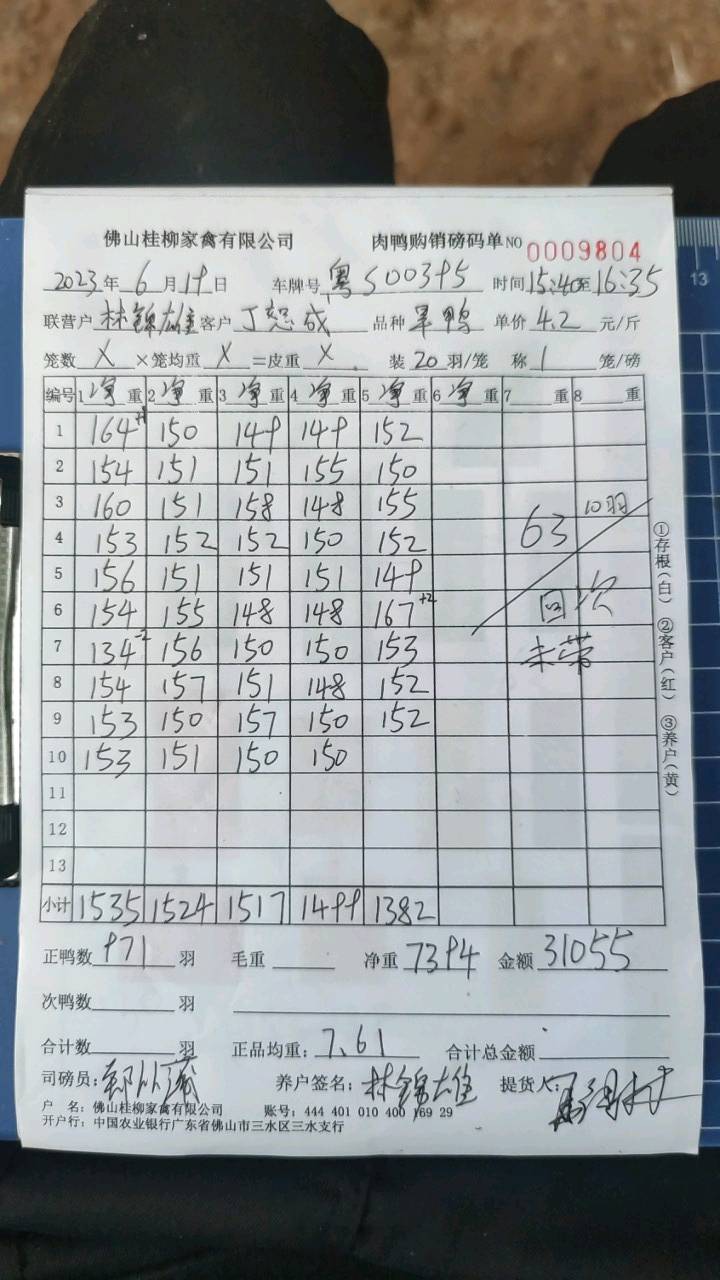 佛山桂柳家禽有限公司 肉鸭购销磅码单NO 0009804
2023年6月19日 车牌号 粤S00395 时间15:40至16:35
联营户 林锦雄 客户 丁恕成 品种 旱鸭 单价 4.2 元/斤
笼数 X ×笼均重 X =皮重 X 装 20 羽/笼 称 1 笼/磅
编号 1 净 重 2 净 重 3 净 重 4 净 重 5 净 重 6 净 重 7 重 8 重
1 164 150 149 149 152
2 154 151 151 155 150
3 160 151 158 148 155 10羽
4 153 152 152 150 152 63
5 156 151 151 151 149
6 154 155 148 148 167+2 回次
7 134-2 156 150 150 153 未带
8 154 157 151 148 152
9 153 150 157 150 152
10 153 151 150 150
11
12
13
小计 1535 1524 1517 1499 1382
①存根(白) ②客户(红) ③养户(黄)
正鸭数 971 羽 毛重 净重 7394 金额 31055
次鸭数 羽
合计数 羽 正品均重: 7.61 合计总金额
司磅员: 养户签名: 林锦雄 提货人:
户 名: 佛山桂柳家禽有限公司 账号: 444 401 010 400 169 29
开户行: 中国农业银行广东省佛山市三水区三水支行
13